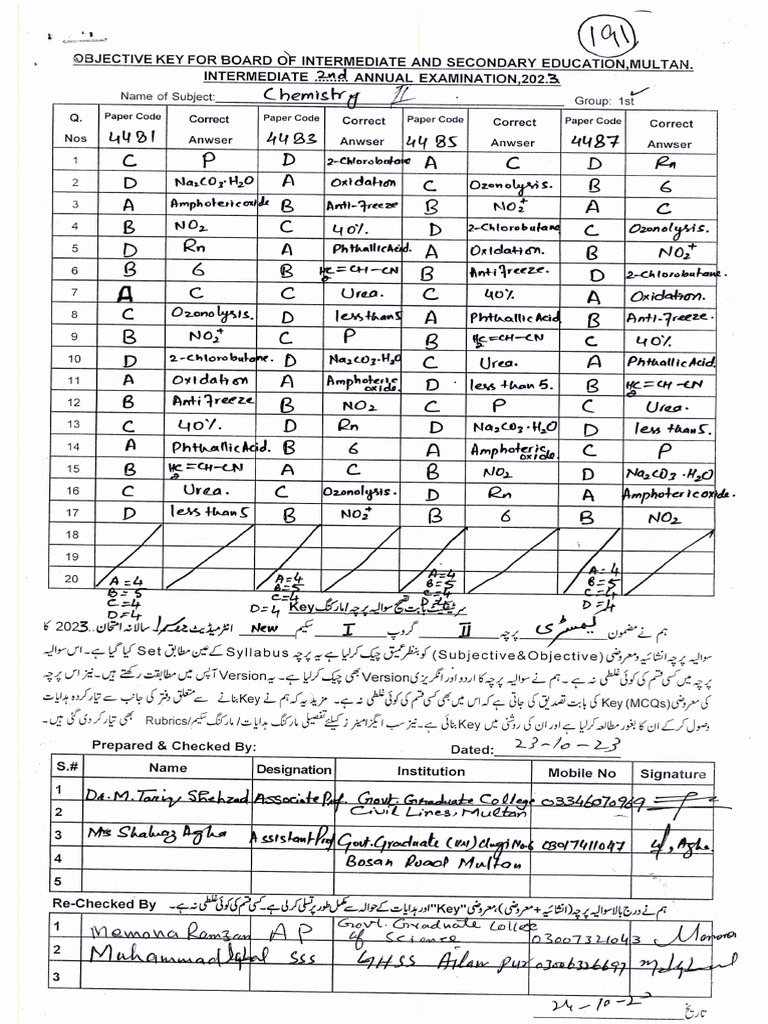 191
OBJECTIVE KEY FOR BOARD OF INTERMEDIATE AND SECONDARY EDUCATION,MULTAN.
INTERMEDIATE 2nd ANNUAL EXAMINATION,2023
Name of Subject: Chemistry II Group: 1st ✓
Q. Nos Paper Code 4481 Correct Anwser Paper Code 4483 Correct Anwser Paper Code 4485 Correct Anwser Paper Code 4487 Correct Anwser
1 C P D 2-chlorobutane A C D Rn
2 D Na2CO3·H2O A Oxidation C Ozonolysis. B 6
3 A Amphoteric oxide B Anti-freeze B NO2+ A C
4 B NO2 C 40%. D 2-Chlorobutane C Ozonolysis.
5 D Rn A Phthallic Acid. A Oxidation. B NO2+
6 B 6 B H2C=CH-CN B Antifreeze. D 2-chlorobutane.
7 A C C Urea. C 40% A Oxidation.
8 C Ozonolysis. D less than 5 A Phthallic Acid B Anti-Freeze.
9 B NO2+ C P B H2C=CH-CN C 40%
10 D 2-chlorobutane. D Na2CO3·H2O C Urea. A Phthallic Acid.
11 A Oxidation A Amphoteric oxide. D less than 5. B H2C=CH-CN
12 B Antifreeze B NO2 C P C Urea.
13 C 40%. D Rn D Na2CO3·H2O D less than 5.
14 A Phthallic Acid. B 6 A Amphoteric oxide. C P
15 B H2C=CH-CN A C B NO2 D Na2CO3·H2O
16 C Urea. C Ozonolysis. D Rn A Amphoteric oxide.
17 D less than 5 B NO2+ B 6 B NO2
18
19
20 A=4 B=5 C=4 D=4 A=4 B=5 C=4 D=4 A=4 B=5 C=4 D=4 A=4 B=5 C=4 D=4
سرٹیفکیٹ بابت تصحیح سوالیہ پرچہ/مارکنگ Key
ہم نے مضمون کیمسٹری پرچہ II گروپ I سکیم New انٹرمیڈیٹ سالانہ امتحان 2023 کا
سوالیہ پرچہ انشائیہ و معروضی (Subjective&Objective) کو بنظر عمیق چیک کر لیا ہے یہ پرچہ Syllabus کے عین مطابق Set کیا گیا ہے۔ اس سوالیہ
پرچہ میں کسی قسم کی کوئی غلطی نہ ہے۔ ہم نے سوالیہ پرچہ کا اردو اور انگریزی Version بھی چیک کر لیا ہے۔ یہ Version آپس میں مطابقت رکھتے ہیں۔ نیز اس پرچہ
کی معروضی (MCQs) Key کی بابت تصدیق کی جاتی ہے کہ اس میں بھی کسی قسم کی کوئی غلطی نہ ہے۔ مزید یہ کہ ہم نے Key بنانے سے متعلق دفتر کی جانب سے تیار کردہ ہدایات
وصول کر کے ان کا بغور مطالعہ کر لیا ہے اور ان کی روشنی میں Key بنائی ہے۔ نیز سب ایگزامینرز کیلئے تفصیلی مارکنگ ہدایات / مارکنگ سکیم/Rubrics بھی تیار کر دی گئی ہیں۔
Prepared & Checked By: Dated: 23-10-23
S.# Name Designation Institution Mobile No Signature
1 Dr. M. Tariq Shehzad Associate Prof. Govt. Graduate College Civil Lines, Multan 03346070969
2
3 Ms Shahnaz Agha Assistant Prof Govt. Graduate 03017411047
4 Bosan Road Multan
5
Re-Checked By ہم نے درج بالا سوالیہ پرچہ (انشائیہ + معروضی)، معروضی "Key" اور ہدایات کے حوالہ سے مکمل طور پر تسلی کر لی ہے۔ کسی قسم کی کوئی غلطی نہ ہے۔
1 Memona Ramzan AP Govt. Graduate College of Science 03007321043
2 Muhammad Iqbal SSS GHSS 03006326697
3
تاریخ 24-10-23